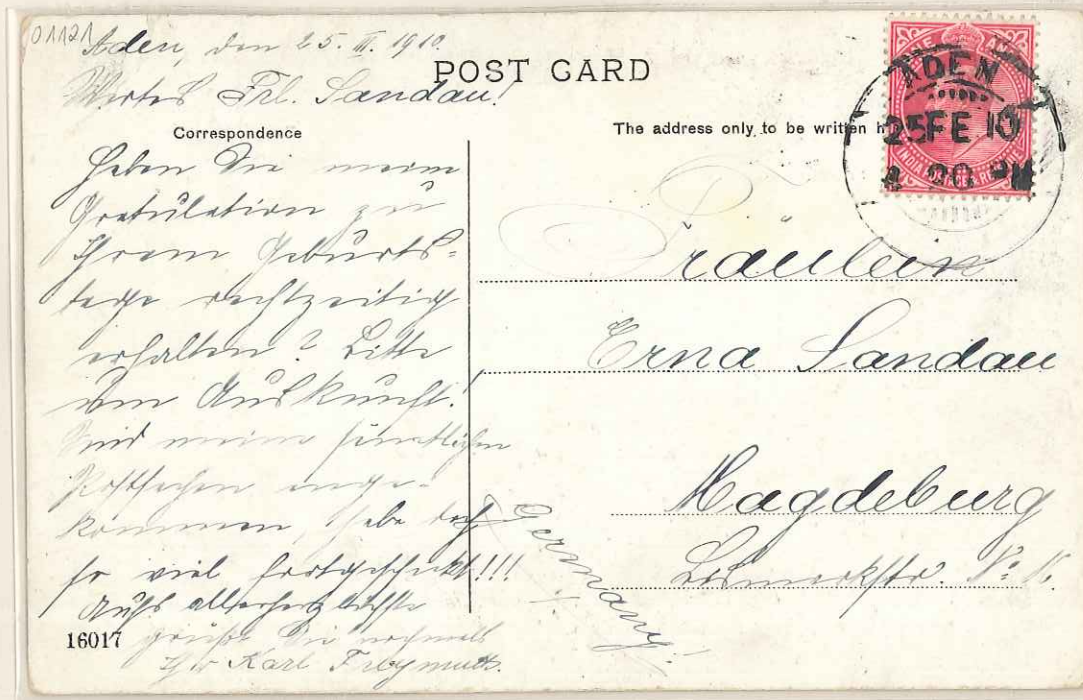 01121
Aden, den 25. II. 1910.
POST CARD
Wertes Frl. Sandau!
Correspondence
The address only to be written h
ADEN
25 FE 10
PM
INDIA POSTAGE & REVENUE
Haben Sie meine
Gratulation zu
Ihrem Geburts-
tage rechtzeitig
erhalten? Bitte
um Auskunft!
Sind meine sämtlichen
Postsachen ange-
kommen, habe doch
so viel fortgeschickt!!!
Aufs allerherzlichste
grüßt Sie nochmals
Ihr Karl
16017
Fräulein
Erna Sandau
Magdeburg
No
Germany!